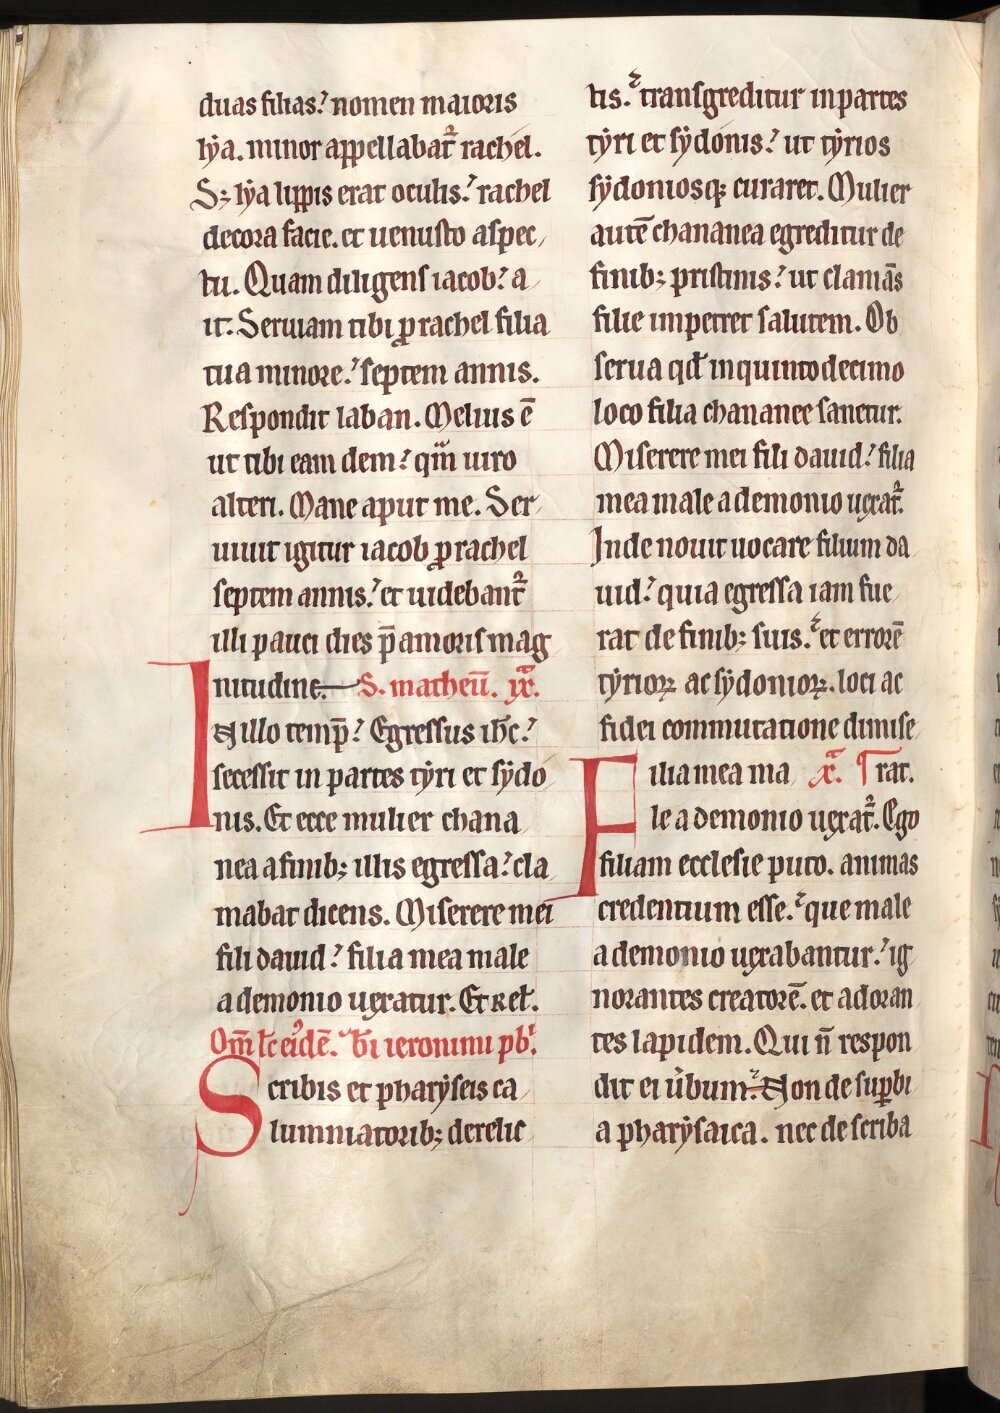 duas filias. nomen maioris
lẏa. minor appellabat᷑ rachel.
S; lẏa lippis erat oculis. rachel
decora facie. et uenusto aspec
tu. Quam diligens iacob. a
it. Seruiam tibi ꝓ rachel filia
tua minore. septem annis.
Respondit laban. Melius ē
ut tibi eam dem. qm̄ uiro
alteri. Mane aput me. Ser
uiuit igitur iacob ꝓ rachel
septem annis. et uidebant᷑
illi pauci dies p̄ amoris mag
nitudine. S. matheū. ix.
In illo temp̄. Egressus ih̄c.
secessit in partes tẏri et sẏdo
nis. Et ecce mulier chana
nea a finib; illis egressa. cla
mabat dicens. Miserere mei
fili dauid. filia mea male
a demonio uexatur. Et rel̄.
Om̄ lc̄ eidē. bi ieronimi pb̄i.
Scribis et pharẏseis ca
lumniatorib; derelic
tis. transgreditur in partes
tẏri et sẏdonis. ut tẏrios
sẏdoniosq; curaret. Mulier
autē chananea egreditur de
finib; pristinis. ut clamās
filie impetret salutem. Ob
serua qd̄ in quinto decimo
loco filia chananee sanetur.
Miserere mei fili dauid. filia
mea male a demonio uexat᷑.
Inde nouit uocare filium da
uid. quia egressa iam fue
rat de finib; suis. et errorē
tẏrioꝝ ac sẏdonioꝝ. loci ac
fidei commutatione dimise
Filia mea ma x. ¶rat.
le a demonio uexat᷑. Ego
filiam ecclesie puto. animas
credentium esse. que male
a demonio uexabantur. ig
norantes creatorē. et adoran
tes lapidem. Qui n̄ respon
dit ei u̅bum. Non de suꝑbi
a pharẏsaica. nec de scriba